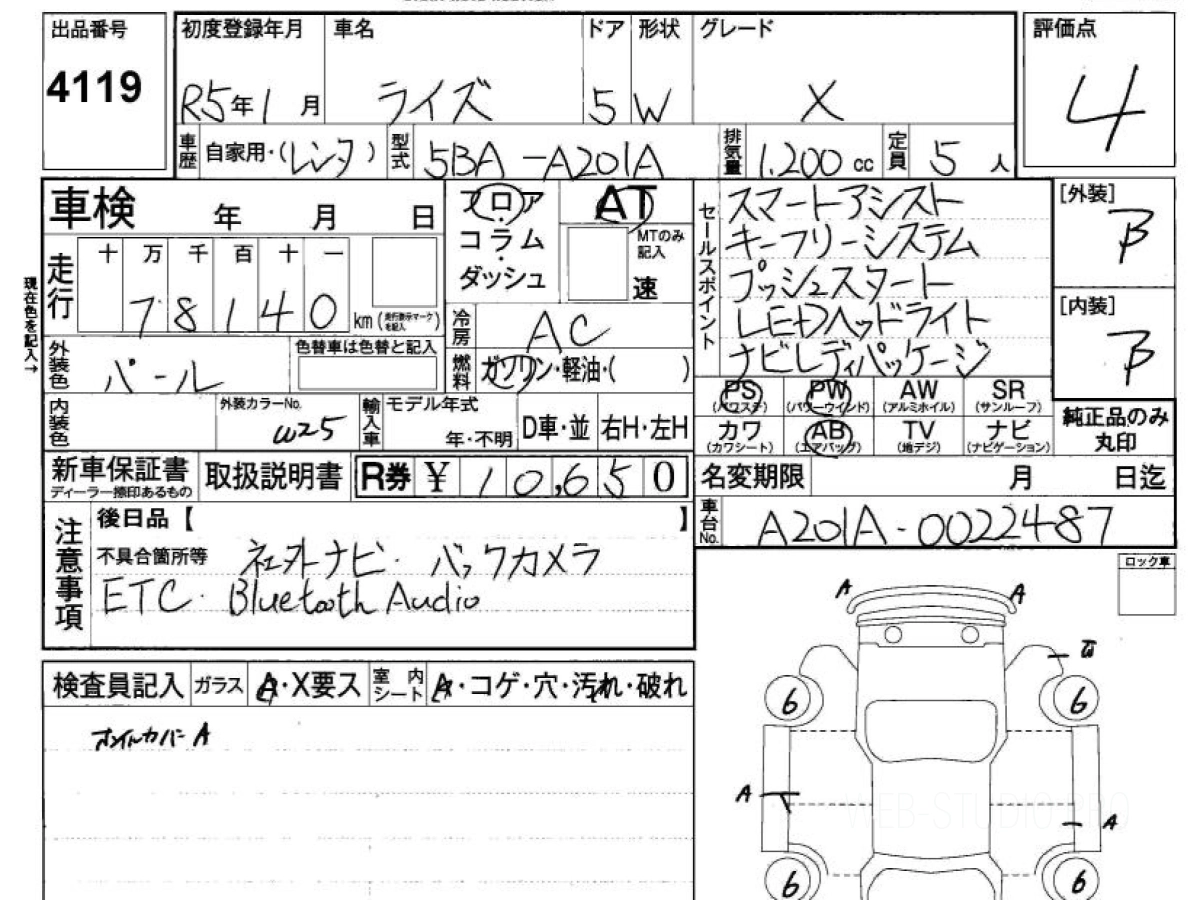 出品番号
4119
初度登録年月
R5年1月
車名
ライズ
ドア
5
形状
W
グレード
X
評価点
4
車歴
自家用・(レンタ)
型式
5BA-A201A
排気量
1.200 cc
定員
5人
車検 年 月 日
走行
十 万 千 百 十 一
78140 km (走行表示マークを記入)
現在色を記入→
外装色
パール
色替車は色替と記入
内装色
外装カラーNo.
W25
フロア
コラム
ダッシュ
AT
MTのみ記入
速
冷房
AC
燃料
ガソリン・軽油・( )
輸入車
モデル年式
年・不明
D車・並
右H・左H
セールスポイント
スマートアシスト
キーフリーシステム
プッシュスタート
LEDヘッドライト
ナビレディパッケージ
[外装]
B
[内装]
B
PS (パワステ)
PW (パワーウインド)
AW (アルミホイル)
SR (サンルーフ)
カワ (カワシート)
AB (エアバッグ)
TV (地デジ)
ナビ (ナビゲーション)
純正品のみ丸印
新車保証書
ディーラー捺印あるもの
取扱説明書
R券 ¥ 10,650
名変期限 月 日迄
車台No.
A201A-0022487
注意事項
後日品【 】
不具合箇所等 社外ナビ・バックカメラ
ETC・Bluetooth Audio
ロック車
検査員記入
ガラス
A・X要ス
室内シート
A・コゲ・穴・汚れ・破れ
A
A A
6 6
A
A
6 6
WEB-STUDIO.PRO